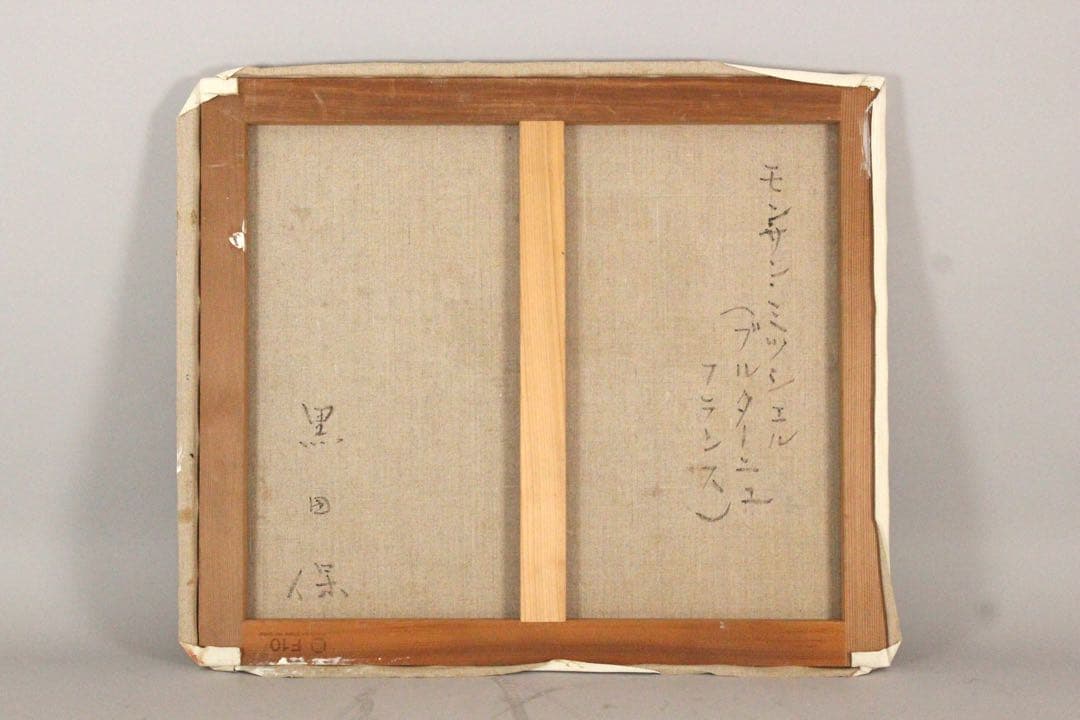 モンサン・ミッシェル
(ブルターニュ
フランス)
黒田保
F10